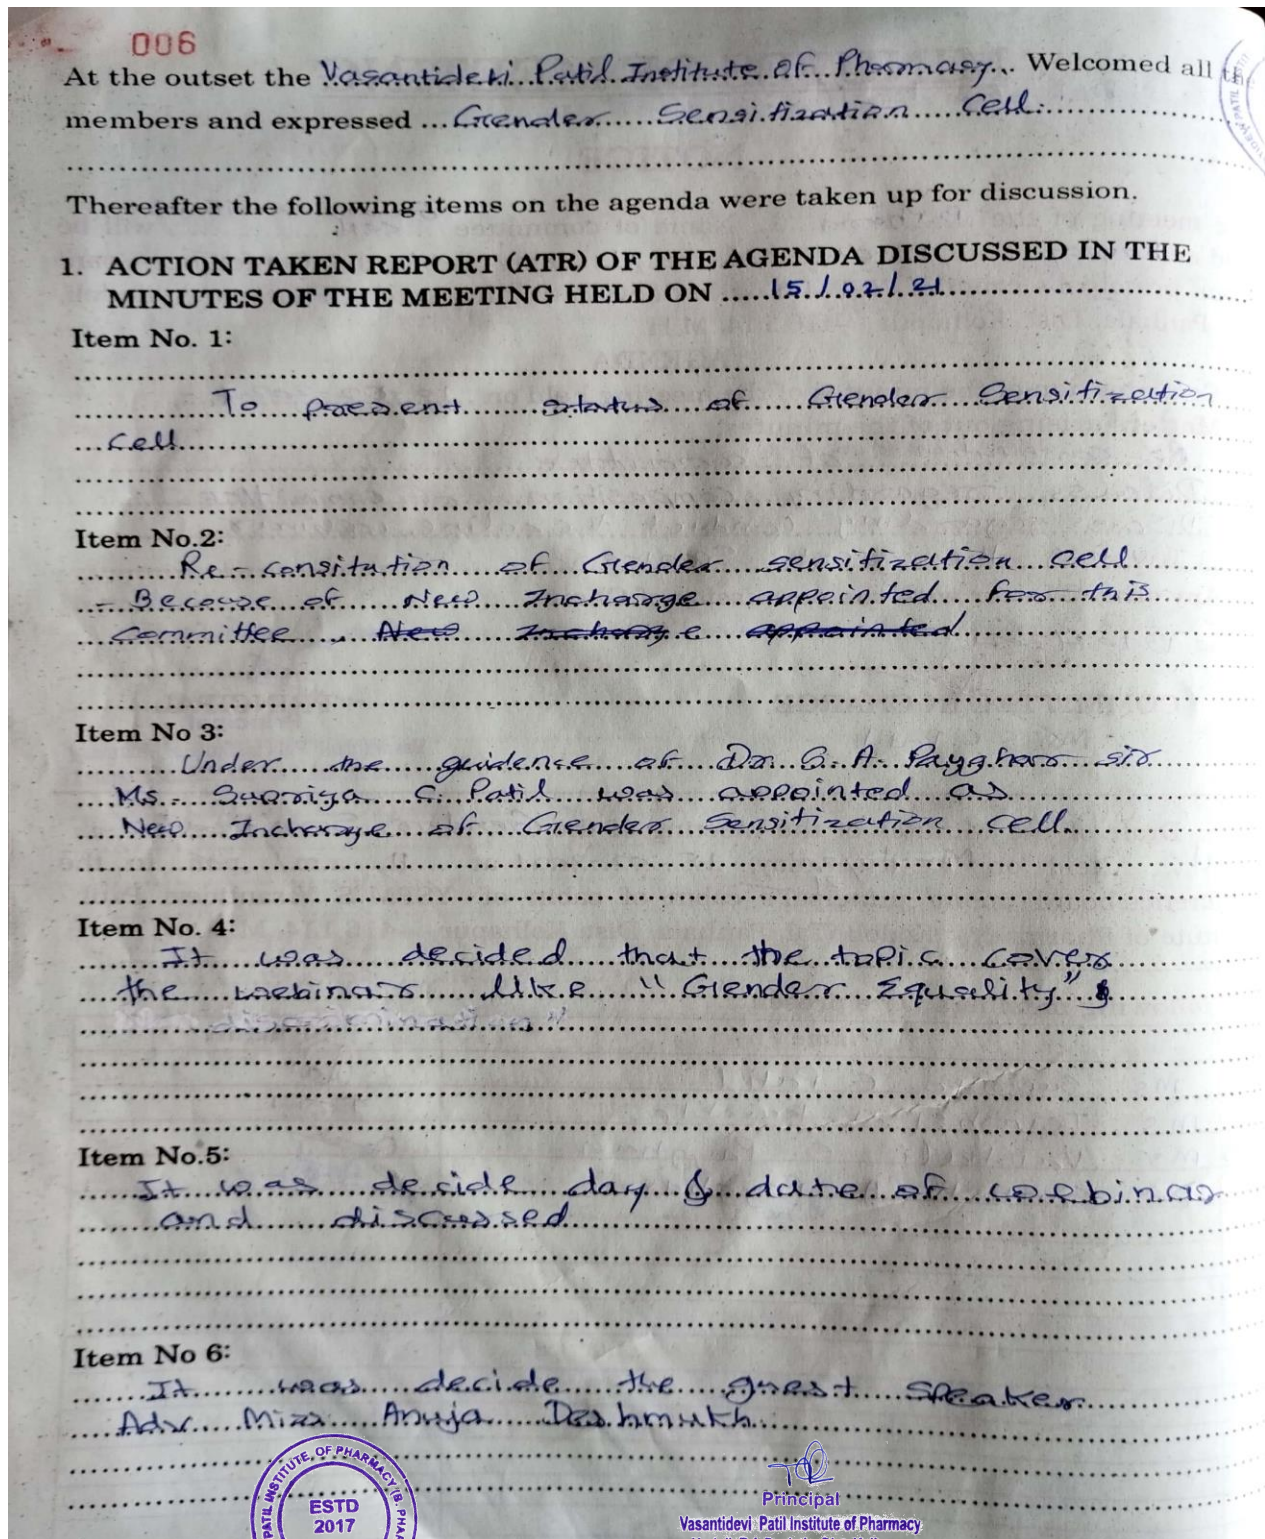 006
At the outset the Vasantidevi Patil Institute of Pharmacy Welcomed all the
members and expressed Gender Sensitization Cell.
Thereafter the following items on the agenda were taken up for discussion.
1. ACTION TAKEN REPORT (ATR) OF THE AGENDA DISCUSSED IN THE
MINUTES OF THE MEETING HELD ON 15/02/21
Item No. 1:
To present status of Gender Sensitization
Cell
Item No.2:
Re-consitution of Gender sensitization cell
- Because of New Incharge appointed for this
Committee, New Incharge appointed
Item No 3:
Under the guidence of Dr. S. A. Payghan sir
Ms. Supriya C. Patil was appointed as
New Incharge of Gender Sensitization cell.
Item No. 4:
It was decided that the topic cover
the webinar like "Gender Equality"
Item No.5:
It was decide day & date of webinar
and discussed
Item No 6:
It was decide the guest Speaker
Adv. Miss Anuja Deshmukh.
PATIL INSTITUTE OF PHARMACY (B. PHAR
ESTD
2017
Principal
Vasantidevi Patil Institute of Pharmacy